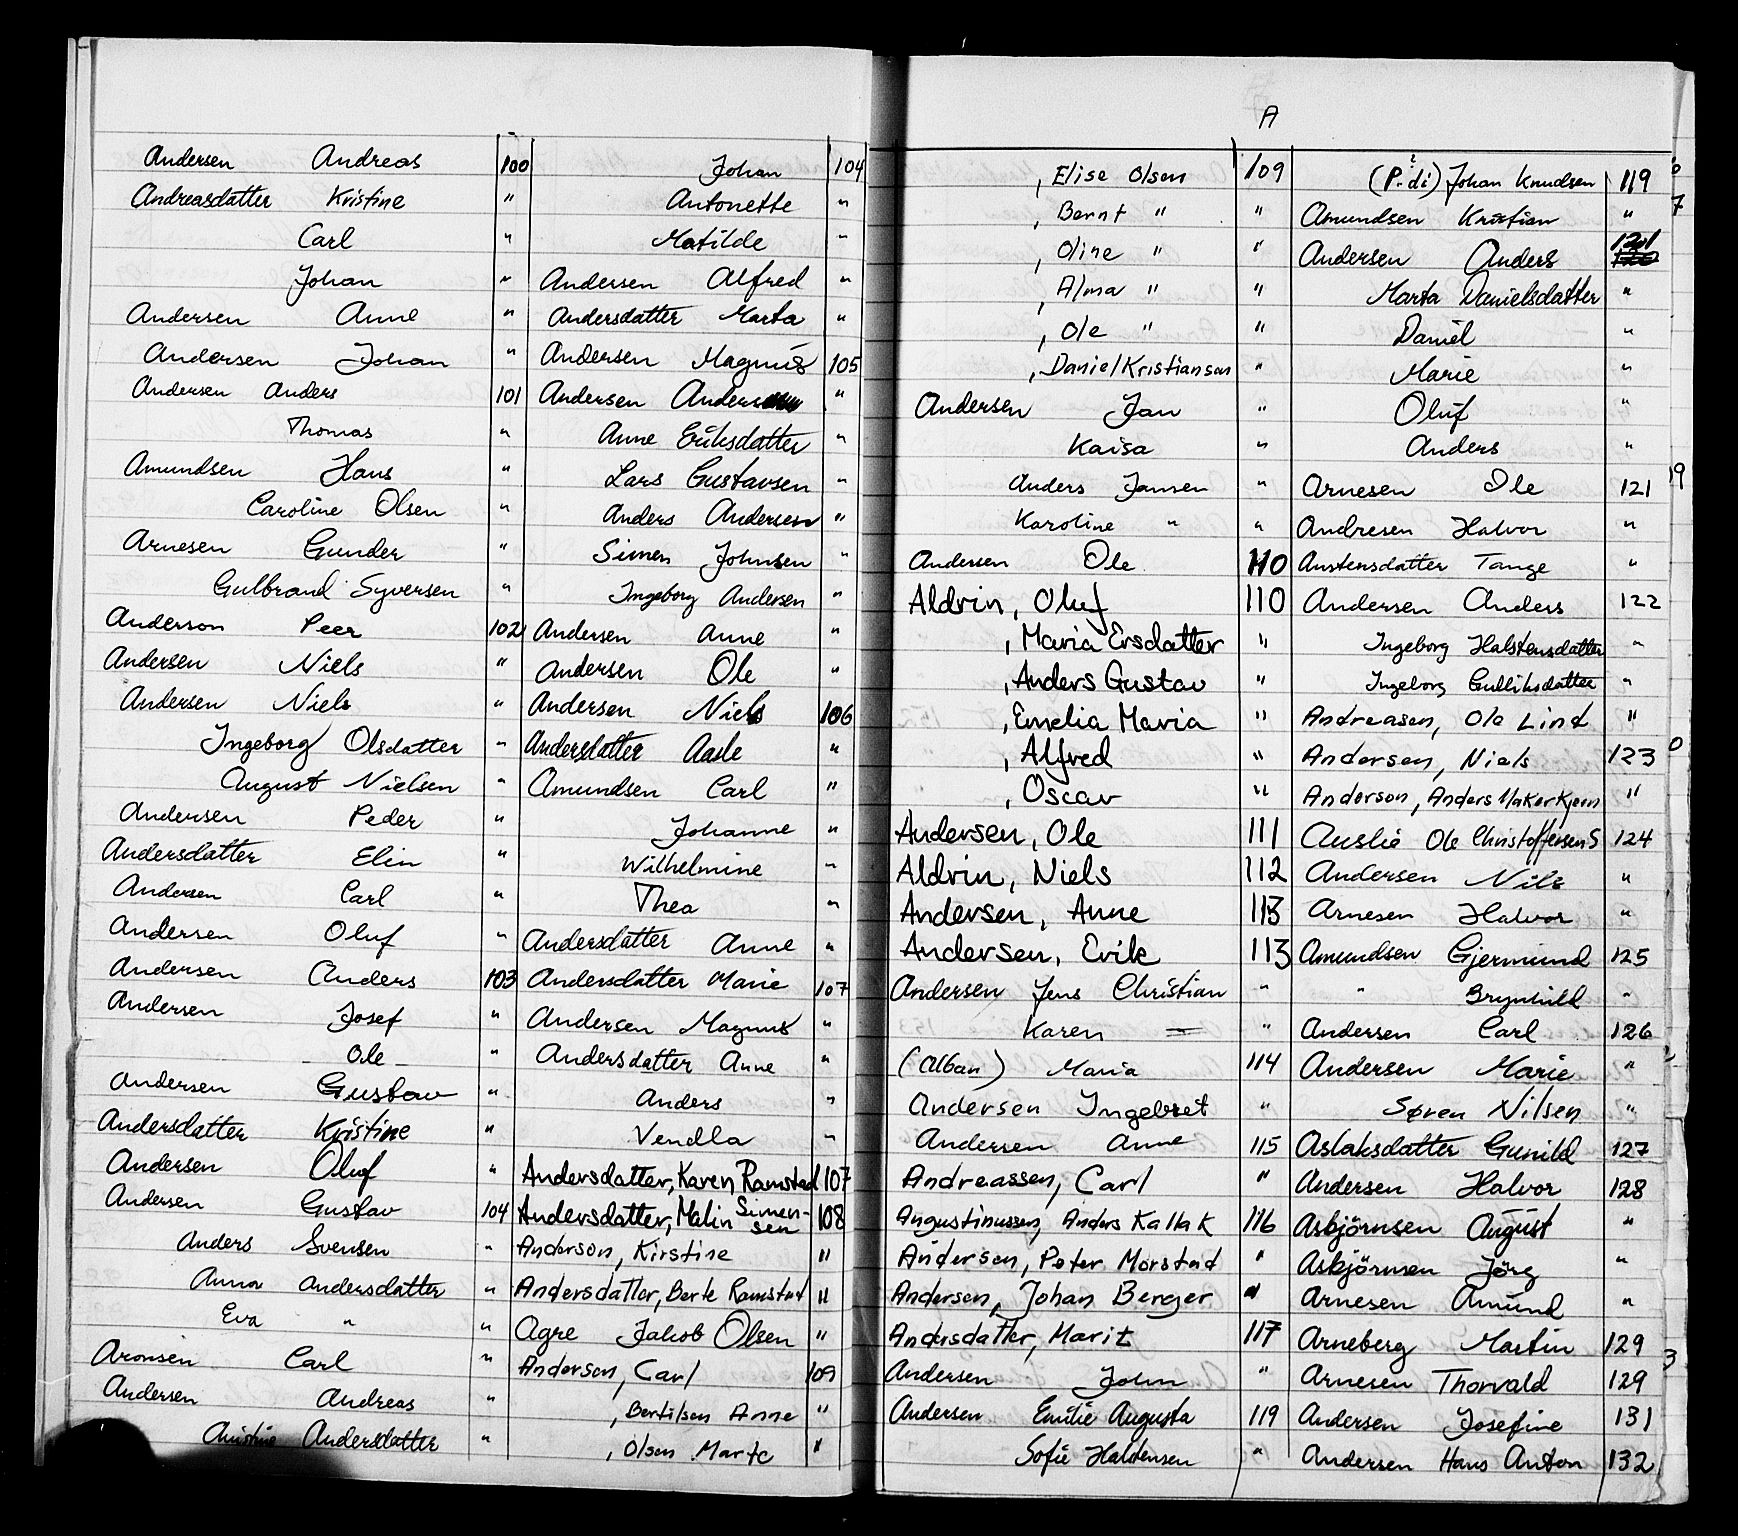 Andersen Andreas 100
Andreasdatter Kristine "
Carl "
Johan "
Andersen Anne "
Andersen Johan "
Andersen Anders 101
Thomas "
Amundsen Hans "
Caroline Olsen "
Arnesen Gunder "
Gulbrand Syversen "
Anderson Peer 102
Andersen Niels "
Andersen Niels "
Ingeborg Olsdatter "
August Nielsen "
Andersen Peder "
Andersdatter Elin "
Andersen Carl "
Andersen Oluf "
Andersen Anders 103
Andersen Josef "
Ole "
Andersen Gustav "
Andersdatter Kristine "
Andersen Oluf "
Andersen Gustav 104
Anders Svensen "
Anna Andersdatter "
Eva " "
Aronsen Carl "
Andersen Andreas "
Andersdatter "
Johan 104
Antonette "
Matilde "
Andersen Alfred "
Andersdatter Marta "
Andersen Magnus 105
Andersen Anders "
Anne Eriksdatter "
Lars Gustavsen "
Anders Andersen "
Simen Johnsen "
Ingeborg Andersen "
Andersen Anne "
Andersen Ole "
Andersen Niels 106
Andersdatter "
Amundsen Carl "
Johanne "
Wilhelmine "
Thea "
Andersdatter Anne "
Andersdatter Marie 107
Andersen Magnus "
Andersdatter Anne "
Anders "
Vendla "
Andersdatter, Karen Ramstad 107
Andersdatter, Malin Simensen 108
Anderson, Kirstine "
Andersdatter, Berte Ramstad "
Agre Jakob Olsen "
Anderson, Carl 109
, Bertilsen Anne "
, Olsen Marte "
A
, Elise Olsen 109
, Bernt " "
, Oline " "
, Alma " "
, Ole " "
, Daniel Kristiansen "
Andersen Jan "
Kaisa "
Anders Jansen "
Karoline " "
Andersen Ole 110
Aldrin, Oluf 110
, Maria Ersdatter "
, Anders Gustav "
, Emelia Maria "
, Alfred "
, Oscar "
Andersen, Ole 111
Aldrin, Niels 112
Andersen, Anne 113
Andersen, Erik 113
Andersen Jens Christian "
Karen = "
(Alban) Maria 114
Andersen Ingebret "
Andersen Anne 115
Andreassen, Carl "
Angustinussen, Anders Kallak 116
Andersen, Peter Morstad "
Andersen, Johan Berger "
Andersdatter, Marit 117
Andersen John "
Andersen Emilie Augusta 119
Sofie Halstensen "
(P. di) Johan Knudsen 119
Amundsen Kristian "
Andersen Anders 121
Marta Danielsdatter "
Daniel "
Marie "
Oluf "
Anders "
Arnesen Ole 121
Andresen Halvor "
Austensdatter Tange "
Andersen Anders 122
Ingeborg Halstensdatter "
Ingeborg Gulliksdatter "
Andreasen, Ole Lind "
Andersen, Niels 123
Anderson, Anders Makerkjern "
Auslie Ole Christoffersen S 124
Andersen Nils "
Arnesen Halvor "
Amundsen Gjermund 125
" Brynhild "
Andersen Carl 126
Andersen Marie "
Søren Nilsen "
Aslaksdatter Gunild 127
Andersen Halvor 128
Asbjörnsen August "
Asbjörnsen Jörg "
Arnesen Amund "
Arneberg Martin 129
Arnesen Thorvald 129
Andersen Josefine 131
Andersen Hans Anton 132